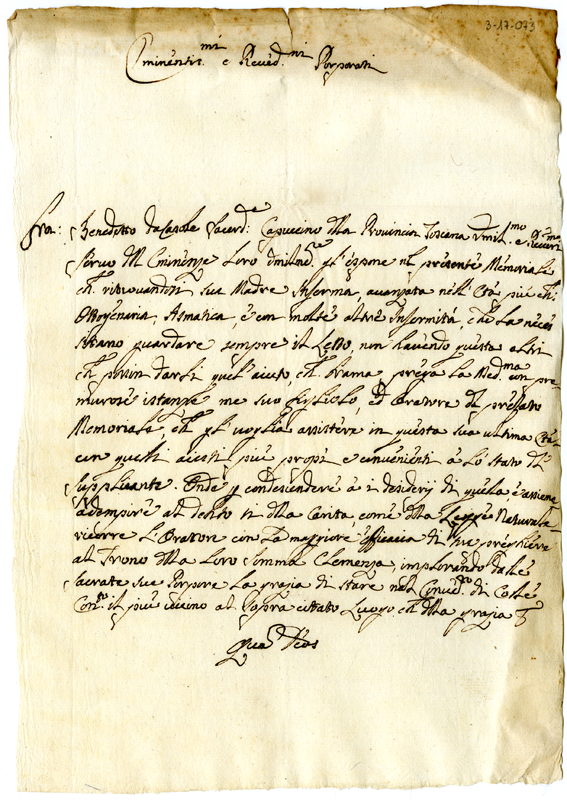 3-17-073
Eminentis.mi e Reved.mi Porporati
Fra: Benedetto da Casole Sacerd.te Capuccino della Provincia Toscana Umil.mo e
servo dell Eminenze Loro espone nel presente Memoriale
che ritrovandosi sua Madre Inferma, avanzata nell' Età più che
Ottogenaria, Asmatica, e con molte altre Infermità, che la neces
sitano guardare sempre il Letto, non havendo questa altri
che possin darli quel' aiuto, che brama, prega la Med.ma con pre
murose istanze me suo figliolo, ed Oratore del presente
Memoriale che gl' voglia assistere in questa sua ultima Età
con quelli aiuti più propri e convenienti à lo stato del
supplicante. Onde p condescendere à i desiderij di quela è assieme
adempire al debito si della Carità, come della Legge Naturale
ricorre l'Oratore con la maggiore efficacia di sue preghiere
al Trono della Loro somma Clemenza, implorando dalle
sacrate sue Porpore la grazia di stare nel Conv.to di Colle
Con.to il più vicino al sopra citato Luogo che della grazia
Quam Deos